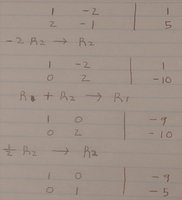 1 -2 | 1
2 -1 | 5
-2 R₂ → R₂
1 -2 | 1
0 2 | -10
R₁ + R₂ → R₁
1 0 | -9
0 2 | -10
½ R₂ → R₂
1 0 | -9
0 1 | -5